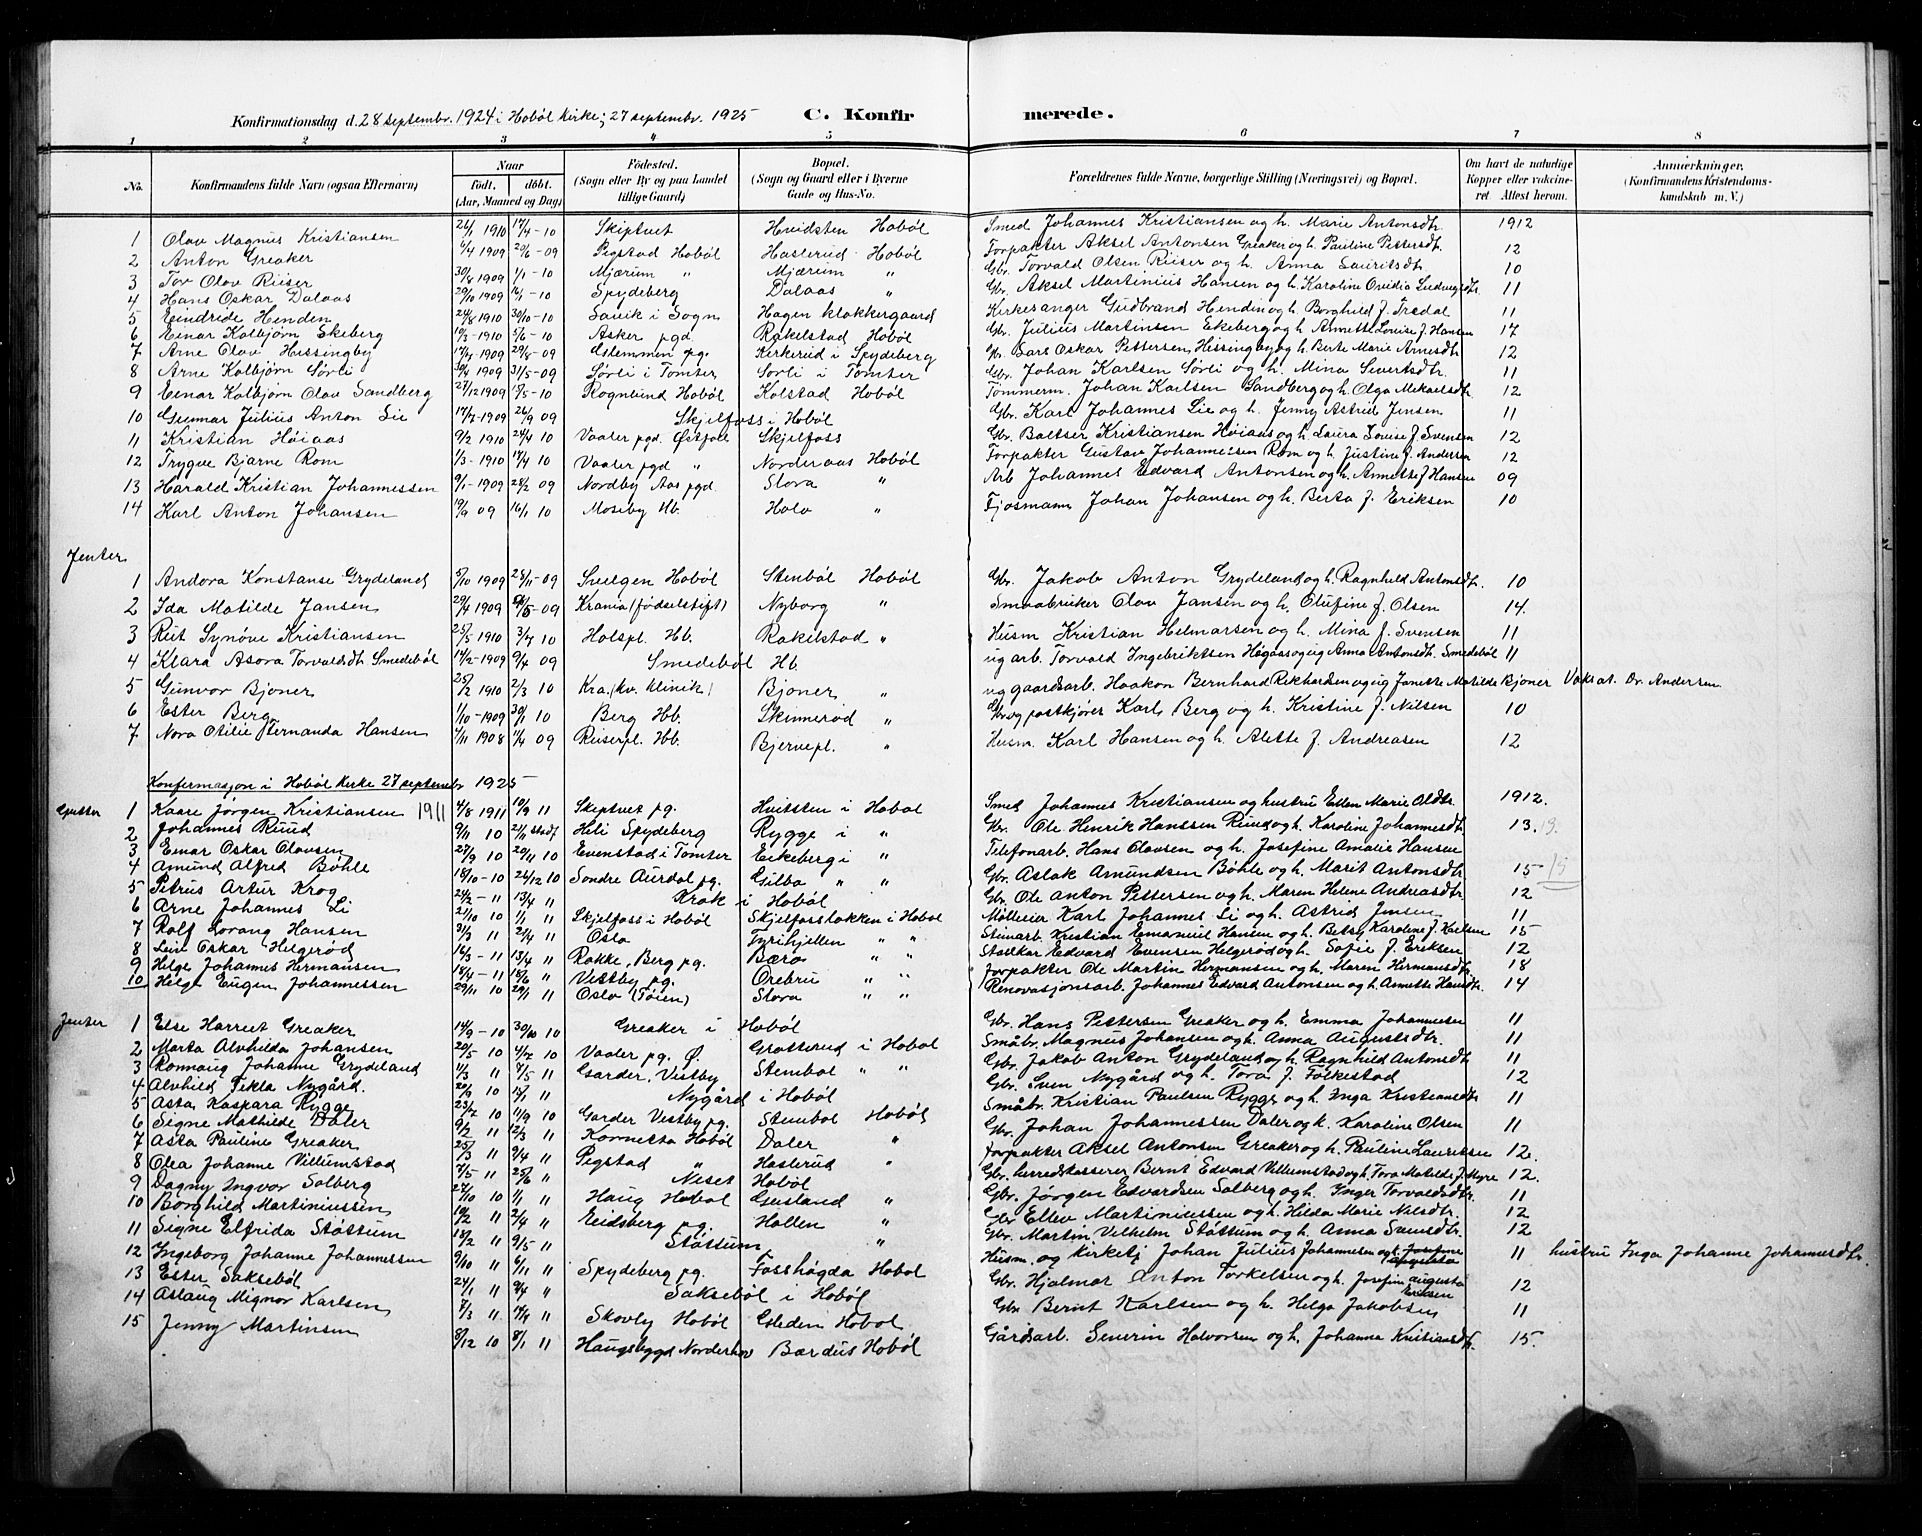 Konfirmationsdag d. 28 septembr. 1924 i Hobøl Kirke; 27 septembr. 1925 C. Konfirmerede.
1 2 3 4 5 6 7 8
No. Konfirmandens fulde Navn (ogsaa Efternavn) Naar født, døbt. (Aar, Maaned og Dag) Fødested. (Sogn eller By og paa Landet tillige Gaard) Bopæl. (Sogn og Gaard eller i Byerne Gade og Hus-No. Forældrenes fulde Navne, borgerlige Stilling (Næringsvei) og Bopæl. Om havt de naturlige Kopper eller vaccineret Attest herom. Anmærkninger, (Konfirmandens Kristendomskundskab m. V.)
1 Olav Magnus Kristiansen 26/1 1910 17/4 - 10 Skiptvet Hvidsten Hobøl Smed Johannes Kristiansen og h. Marie Antonsdtr. 1912
2 Anton Greaker 6/4 1909 20/6 - 09 Pigstad Hobøl Haslerud Hobøl Forpakter Aksel Antonsen Greaker og h. Pauline Pettersdt. 12
3 Tov Olav Riiser 1909 1/1 - 10 Mjærum " Mjærum " Gbr. Torvald Olsen Riiser og h. Anna Lauritsdt. 10
4 Hans Oskar Dalaas 29/10 1909 16/1 - 10 Spydeberg Dalaas " Gbr. Aksel Martinius Hansen og h. Karoline Ovidia Ludvigsdtr. 11
5 Eindride Henden 24/8 1910 30/10 - 10 i Sogn Hagen klokkergaard Kirkesanger Gudbrand Henden og h. Borghild J. Tredal 11
6 Einar Kolbjørn Ekeberg 10/3 - 1910 5/6 - 10 Asker pgd Rakelstad Hobøl Gbr. Julius Martinsen Ekeberg og h. Annette Louise J. Hansen 17
7 Arne Olav Hissingby 1909 29/8 - 09 Glemmen pg. Kirkerud i Spydeberg Gbr. Lars Oskar Pettersen Hissingby og h. Berte Marie Arnesdtr 12
8 Arne Kolbjørn Sørli 30/4 1909 31/5 - 09 Sørli i Tomter Sørli i Tomter Gbr. Johan Karlsen Sørli og h. Mina Sivertsdtr. 11
9 Einar Kolbjørn Olav Sandberg 27/12 1909 15/5 - 10 Rognlund Hobøl Kolstad Hobøl Tømmerm. Johan Karlsen Sandberg og h. Olga Mekaelsdtr 12
10 Gunnar Julius Anton Lie 1909 26/9 09 Skjelfoss i Hobøl Gbr. Karl Johannes Lie og h. Jenny Astrid Jensen 11
11 Kristian Høiaas 9/2 1910 24/4 10 Vaaler pgd. Østfold Skjelfoss Gbr. Baltser Kristiansen Høiaas og h. Laura Louise J. Svensen 12
12 Trygve Bjarne Rom 1/3 - 1910 17/4 10 Vaaler pgd " Norderaas Hobøl Forpakter Gustav Johannessen Rom og h. Justine J. Andersen 12
13 Harald Kristian Johannessen 9/1 - 1909 28/2 09 Nordby Aas pgd. Slora " Arb Johannes Edvard Antonsen og h. Annette J. Hansen 09
14 Karl Anton Johansen 19/9 09 16/1 10 Moseby Hb. Holo " Fjøsmann Johan Johansen og h. Berta J. Eriksen 10
Jenter
1 Andora Konstanse Grydeland 5/10 1909 28/11 - 09 Svelgen Hobøl Stenbøl Hobøl Gbr. Jakob Anton Grydeland og h. Ragnhild Antonsdt. 10
2 Ida Matilde Jansen 29/4 1909 - 09 Krania (fødselstift) Nyborg " Smaabruker Olav Jansen og h. Olufine J. Olsen 14.
3 Rut Synøve Kristiansen 25/5 1910 3/7 10 Holspl. Hb. Rakilstad " Husm Kristian Helmersen og h. Mina J. Svensen 11
4 Klara Asora Torvaldsdt. Smedebøl 14/2 - 1909 9/4 09 Smedebøl Hb. ug arb. Torvald Ingebriktsen Høgaas og ug Anna Antonsdt. Smedebøl 11
5 Gunvor Bjoner 25/2 1910 2/3 10 Kra. (kv. klinik) Bjoner " ug gaardsarb. Haakon Bernhard Rikhardsen og ug Janette Matilde Bjoner Vakat. Dr. Andersen
6 Ester Berg 1/10 - 1909 30/1 10 Berg Hb. Skinnerød " Gbr. og postkjører Karl Berg og h. Kristine J. Nilsen 10
7 Nora Otilie Fernanda Hansen 4/11 1908 11/4 09 Riiserpl. Hb. Bjervepl. " Husm. Karl Hansen og h. Alette J. Andreasen 12
Konfermasjon i Hobøl Kirke 27 septembr 1925
Gutter 1 Kaare Jørgen Kristiansen 1911 4/8 1911 10/9 11 Skiptvet pg. Hvitsten i Hobøl Smed Johannes Kristiansen og hustru Ellen Marie Oldtr. 1912.
2 Johannes Ruud 9/11 10 21/11 stadf Heli Spydeberg Rygge i " Gbr. Ole Henrik Hanssen Ruud og h. Karoline Johannesdtr. 13. 13.
3 Einar Oskar Olavsen 27/9 10 20/11 10 Evenstad i Tomter Eikeberg i " Telefonarb. Hans Olavsen og h. Josefine Amalie Hansen
4 Amund Alfred Bøhle 18/10 - 10 26/12 10 Søndre Aurdal pg. Gilba " " Gbr. Aslak Amundsen Bøhle og h. Marit Antonsdtr. 15 - 15
5 Petrus Artur Krog 24/2 - 11 13/4 11 Krok i Hobøl Gbr. Ole Anton Pettersen og h. Maren Helene Andreasdtr 12
6 Arne Johannes Li 21/10 10 1/1 11 Skjelfoss i Hobøl Skjelfossløkken i Hobøl Mølleeier Karl Johannes Li og h. Astrid Jensen 11
7 Rolf Lorang Hansen 31/3 11 2/4 11 Oslo Fyrihjellen " " Steinarb. Kristian Emanuel Hansen og h. Betsy Karoline J. Karlsen 15
8 Leiv Oskar Helgerød 14/3 - 11 13/4 11 Rakke, Berg pg. Bæra " " Stallkar Edvard Evensen Helgerød og h. Sofie J. Eriksen 12
9 Helge Johannes Hermansen 18/4 - 11 18/6 " Vestby pg. Ørebru " " forpakter Ole Martin Hermansen og h. Maren Hermansdtr. 18
10 Helge Eugen Johannessen 29/11 10 29/1 11 Oslo (Tøien) Slora " " Renovasjonsarb. Johannes Edvard Antonsen og h. Annette Hansdtr. 14
Jenter 1 Else Harriet Greaker 14/9 - 10 30/10 10 Greaker i Hobøl Gbr. Hans Pettersen Greaker og h. Emma Johannesen 11
2 Marta Alvhilda Johansen 20/5 10 4/7 10 Vaaler pg. Ø. Gratterud i Hobøl Småbr. Magnus Johansen og h. Anna Augustsdtr. 11
3 Ronnaug Johanne Grydeland 11/3 11 8/5 11 Garder, Vestby Stenbøl " " Gbr. Jakob Anton Grydeland og h. Ragnhild Antonsdtr 11
4 Alvhild Tekla Nygård. 20/9 10 15/1 11 Nygård i Hobøl Gbr. Sven Nygård og h. Tora J. Folkestad 12
5 Asta Kaspara Rygge 23/7 10 11/9 10 Garder Vestby pg. Stenbøl Hobøl Småbr. Kristian Paulsen Rygge og h. Inga Kristiansdtr 11
6 Signe Mathilde Daler 9/2 11 12/3 11 Kornetta Hobøl Daler " Gbr. Johan Johannessen Daler og h. Karoline Olsen 11
7 Asta Pauline Greaker 25/3 11 9/4 11 Pigstad " Haslerud " forpakter Aksel Antonsen Greaker og h. Pauline Lauritsen 12.
8 Olea Johanne Villumstad 7/5 11 25/6 11 Neset Hobøl Gbr. herredskasserer Bernt Edvard Villumstad og h. Tora Matilde J. Myre 12.
9 Dagny Ingvor Solberg 10 1/1 11 Haug Hobøl Gusland " Gbr. Jørgen Edvardsen Solberg og h. Inger Torvaldsdtr. 11
10 Borghild Martiniussen 10/2 11 2/4 11 Eidsberg pg. Hollen " Gbr Ellev Martiniussen og h. Hilda Marie Nilsdtr. 12
11 Signe Elfrida Støttum 18/2 11 9/5 11 Støttum " Gbr. Martin Vilhelm Støttum og h. Anna Svensdtr. 12
12 Ingeborg Johanne Johannessen 9/10 11 6/11 11 Spydeberg pg. Fosshøgda Hobøl Husm. og kirketj Johan Julius Johannesen og h. Josefine Augusta 11 hustru Inga Johanne Johannesdtr.
13 Ester Saksebøl 24/1 11 9/4 " Saksebøl i Hobøl Gbr. Hjalmar Anton Torkelsen og h. Josefine Augusta Eriksen 12
14 Aslaug Mignor Karlsen 7/3 11 17/4 11 Skovly Hobøl Gleden Hobøl Gbr. Bernt Karlsen og h. Helga Jakobsen 11
15 Jenny Martinsen 8/12 10 8/1 11 Haugsbygd Norderhov Bærdus Hobøl Gårdsarb. Severin Halvorsen og h. Johanna Kristiansdt. 15.